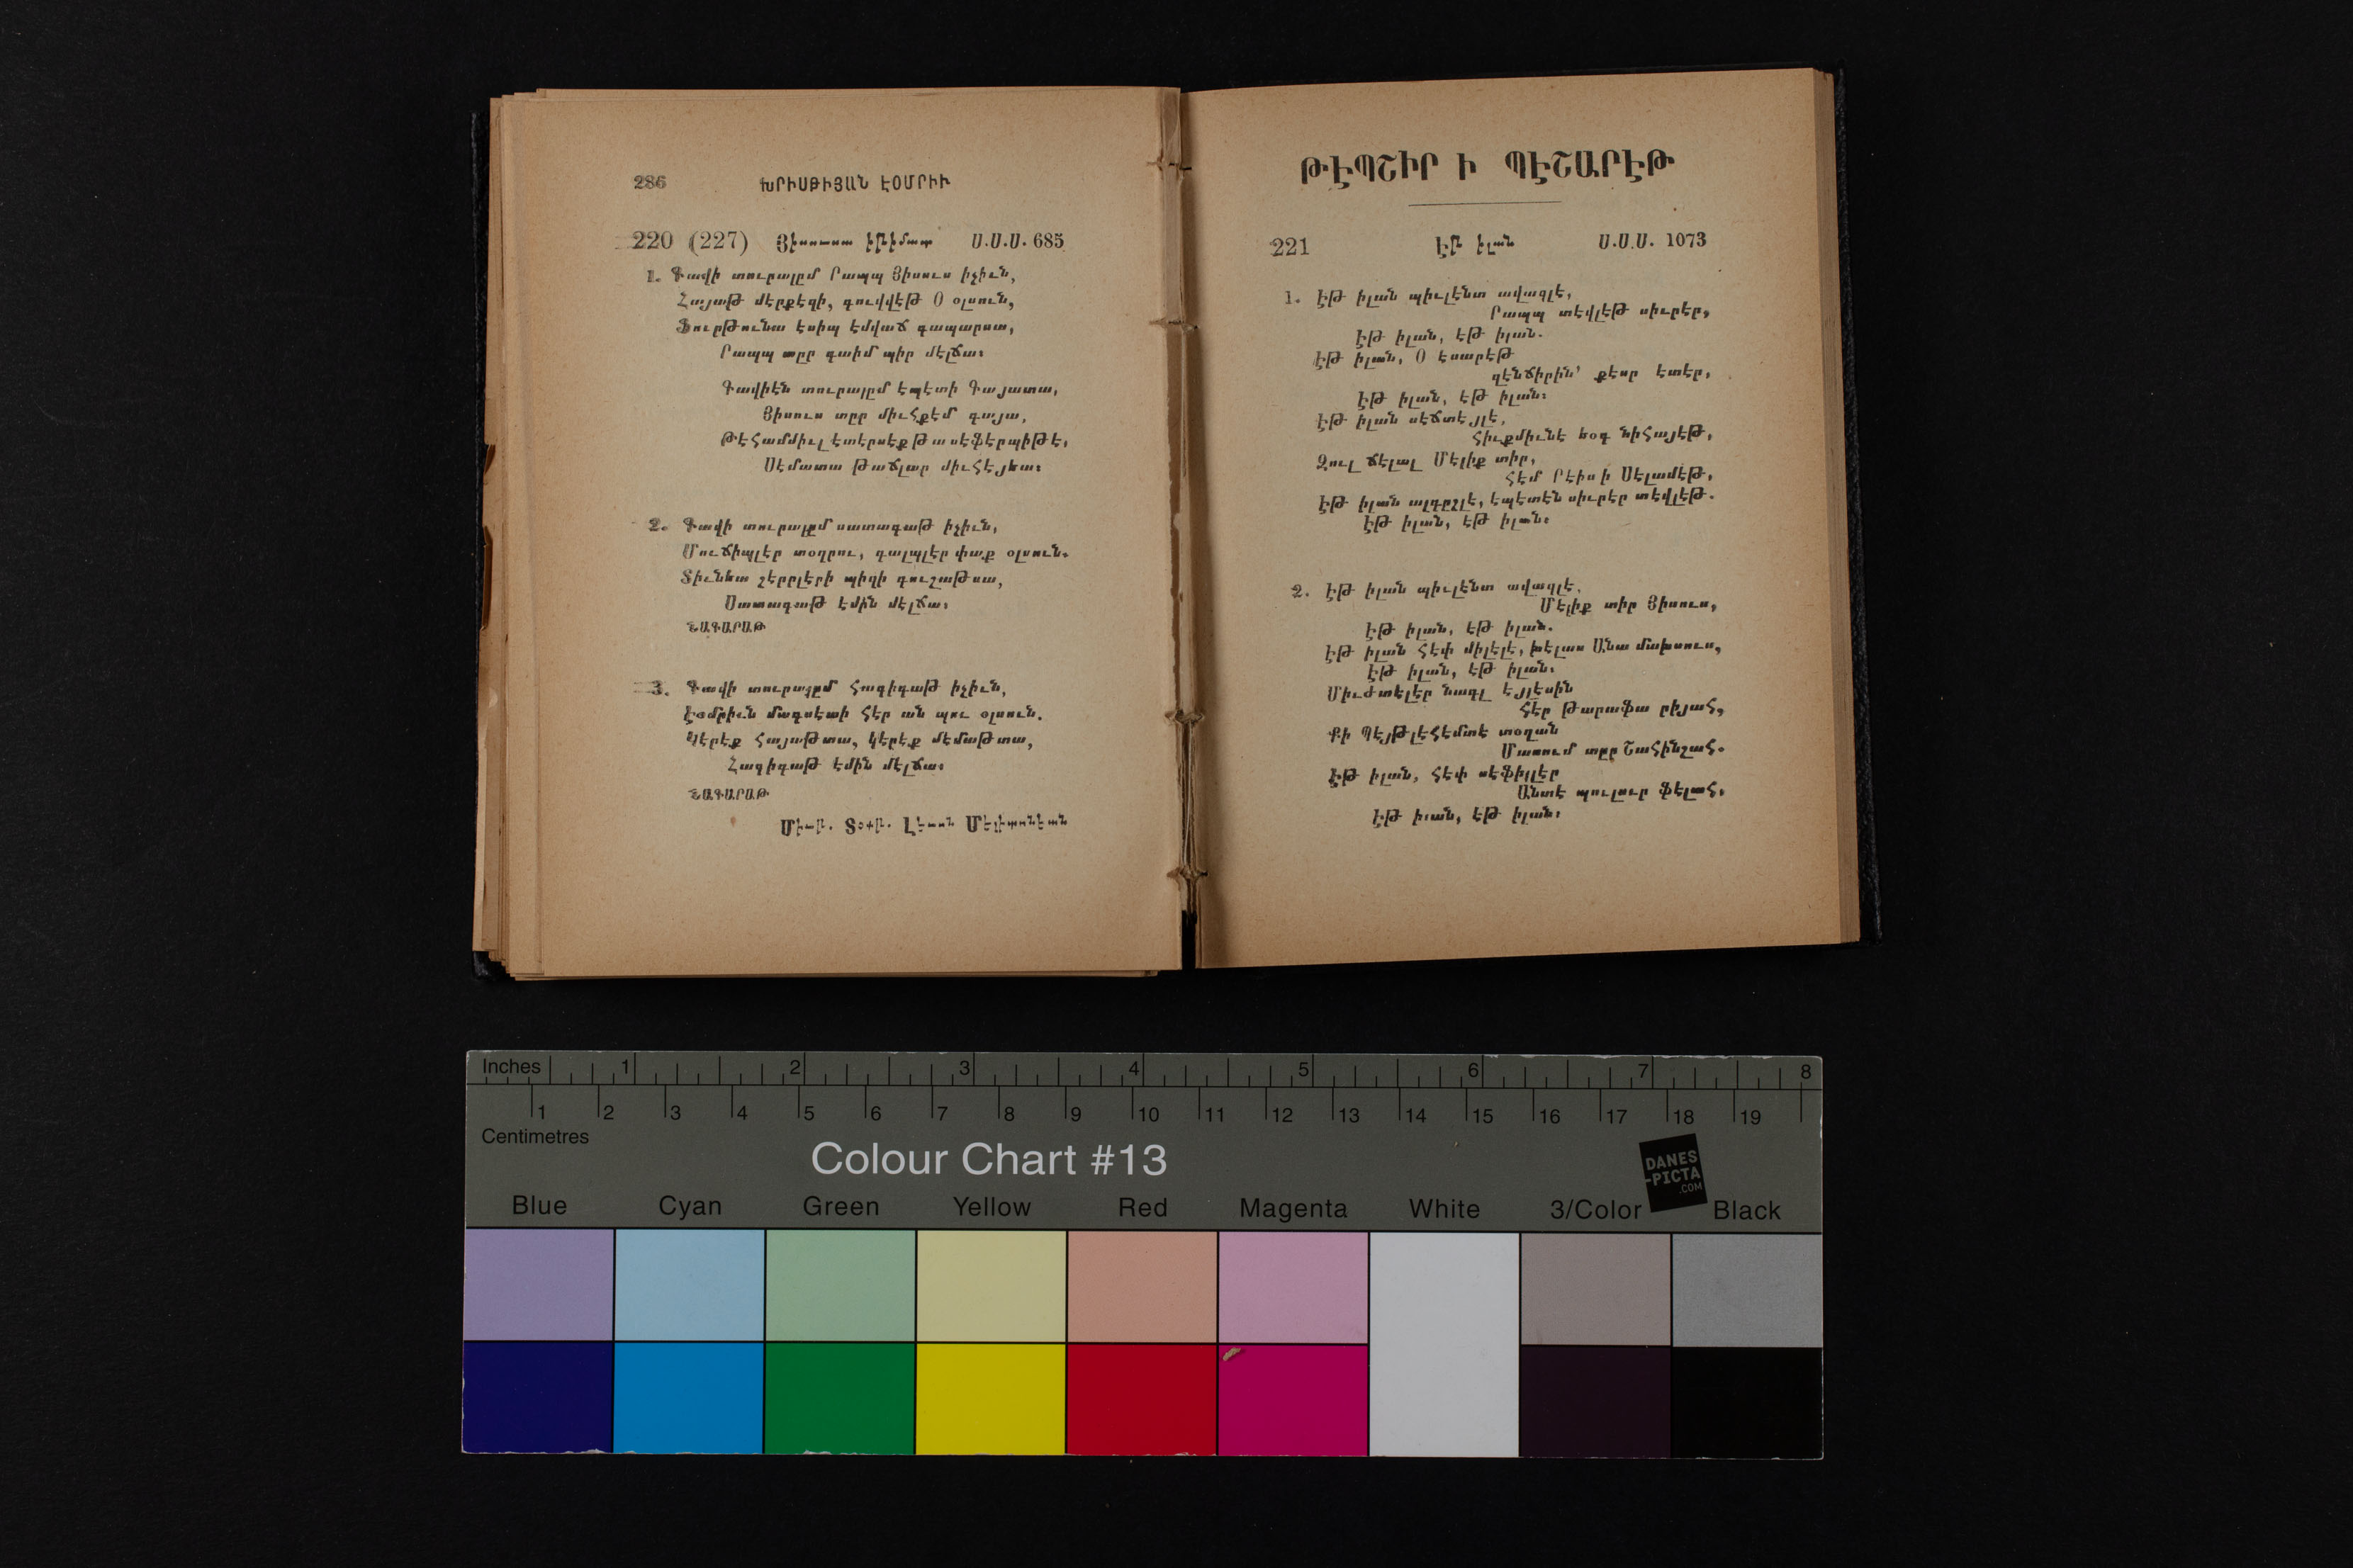 286 ԽՐԻՍԹԻՅԱՆ ԷՕՄՐԻՒ
220 (227) Յիսուսա իթիմատ Ս.Ս.Ս. 685
1. Գավի տուրալըմ Րապպ Յիսուս իչիւն,
Հայաթ մէրքէզի, գուվվէթ Օ օլսուն,
Ֆուրթունա էսիպ էմվաճ գապարսա,
Րապպ տըր գաիմ պիր մէլճա։
Գավիէն տուրալըմ էպէտի Գայատա,
Յիսուս տըր միւհքէմ գայա,
Թէհամմիւլ էտէրսէք թա սէֆէրպիթէ,
Սէմատա թաճլար միւհէյեա։
2. Գավի տուրալըմ սատագաթ իչիւն,
Մուճիպլէր տօղրու, գալպլէր փաք օլսուն.
Տիւնեա շէրրլէրի պիզի գուշաթսա,
Սատագաթ էմին մէլճա։
ՆԱԳԱՐԱԹ
3. Գավի տուրալըմ հագիգաթ իչիւն,
Էօմրիւն մագսէտի հէր ան պու օլսուն.
Կէրէք հայաթտա, կէրէք մէմաթտա,
Հագիգաթ էմին մէլճա։
ՆԱԳԱՐԱԹ
Միւթ. Տօքթ. Լեւոն Մելիտոնեան
ԹԷՊՇԻՐ Ի ՊԷՇԱՐԷԹ
221 Էթ իլան Ս.Ս.Ս. 1073
1. Էթ իլան պիւլէնտ ավազլէ,
Րապպ տէվլէթ սիւրէր,
Էթ իլան, էթ իլան.
Էթ իլան, Օ էսարէթ
զէնճիրին՝ քէսր էտէր,
Էթ իլան, էթ իլան։
Էթ իլան սէճտէյլէ,
Հիւքմիւնէ եօգ նիհայէթ,
Զուլ ճէլալ Մէլիք տիր,
Հէմ Րէիս ի Սէլամէթ,
Էթ իլան ալղըշլէ, էպէտէն սիւրէր տէվլէթ.
Էթ իլան, էթ իլան։
2. Էթ իլան պիւլէնտ ավազլէ,
Մէլիք տիր Յիսուս,
Էթ իլան, էթ իլան.
Էթ իլան հէփ միլէլէ, խէլաս Անա մախսուս,
Էթ իլան, էթ իլան.
Միւժտէլէր նագլ էյլէսին
Հէր թարաֆա րիյահ,
Քի Պէյթլէհէմտէ տօղան
Մասում տըր Շահինշահ.
Էթ իլան, հէփ սէֆիլլէր
Անտէ պուլուր ֆէլահ,
Էթ իւան, էթ իլան։
Inches 1 2 3 4 5 6 7 8
1 2 3 4 5 6 7 8 9 10 11 12 13 14 15 16 17 18 19
Centimetres
Colour Chart #13
DANES
-PICTA
.COM
Blue Cyan Green Yellow Red Magenta White 3/Color Black